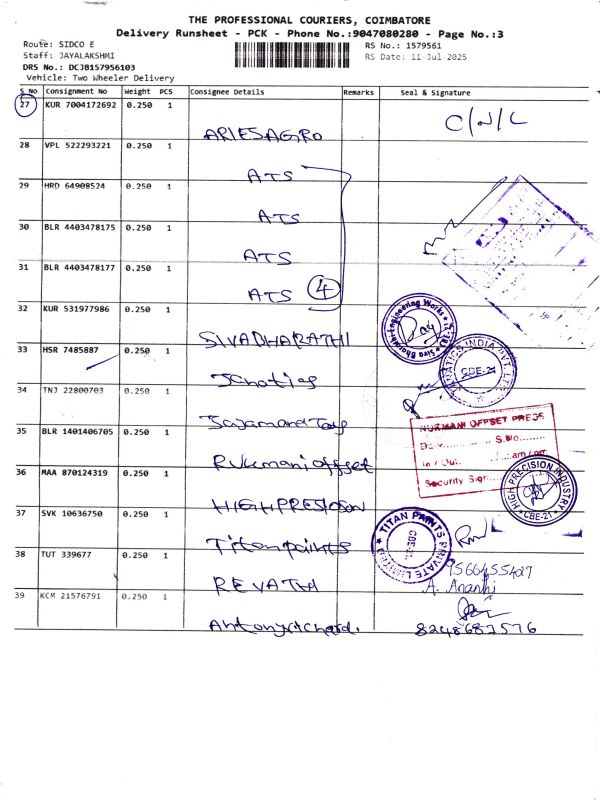 THE PROFESSIONAL COURIERS, COIMBATORE
Delivery Runsheet - PCK - Phone No.:9047080280 - Page No.:3
Route: SIDCO E
RS No.: 1579561
Staff: JAYALAKSHMI
RS Date: 11-Jul-2025
DRS No.: DCJB157956103
Vehicle: Two Wheeler Delivery
S No Consignment No Weight PCS Consignee Details Remarks Seal & Signature
27 KUR 7004172692 0.250 1
ARIESAGRO C/N/L
28 VPL 522293221 0.250 1
ATS
29 HRD 64908524 0.250 1
ATS
30 BLR 4403478175 0.250 1
ATS
31 BLR 4403478177 0.250 1
ATS 4
32 KUR 531977986 0.250 1
SIVABHARATHI
Siva Bharathi Engineering Works
33 HSR 7485887 0.250 1
INDIA PVT. LTD.
CBE-21
34 TNJ 22800703 0.250 1
35 BLR 1401406705 0.250 1
Rukmani offset
RUKMANI OFFSET PRESS
S.No.
In / Out am / pm
Security Sign
36 MAA 870124319 0.250 1
HIGHPRESISON
HIGH PRECISION INDUSTRY
CBE-21
37 SVK 10636750 0.250 1
Titanpaints
TITAN PAINTS PRIVATE LIMITED
CBE-21
38 TUT 339677 0.250 1
REVATHI
9566455427
A. Ananhi
39 KCM 21576791 0.250 1
Antonyrichard. 8248687576